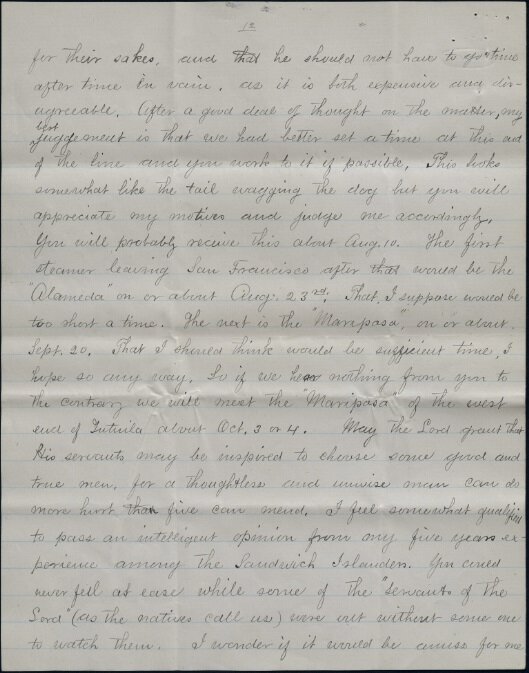 12
for their sakes, and that he should not have to go time
after time in vain, as it is both expensive and dis-
agreeable. After a good deal of thought on the matter, my
best
judgement is that we had better set a time at this end
of the line and you work to it if possible. This looks
somewhat like the tail wagging the dog but you will
appreciate my motives and judge me accordingly.
You will probably receive this about Aug. 10. The first
steamer leaving San Francisco after that would be the
"Alameda" on or about Aug. 23rd. That, I suppose would be
too short a time. The next is the "Mariposa", on or about
Sept. 20. That I should think would be sufficient time, I
hope so any way. So if we hear nothing from you to
the contrary we will meet the "Mariposa" of the west
end of Tutuila about Oct. 3 or 4. May the Lord grant that
His servants may be inspired to choose some good and
true men, for a thoughtless and unwise man can do
more hurt than five can mend. I feel somewhat qualified
to pass an intelligent opinion from my five years ex-
perience among the Sandwich Islanders. You could
never feel at ease while some of the "servants of the
Lord" (as the natives call us) were out without some one
to watch them. I wonder if it would be amiss for me